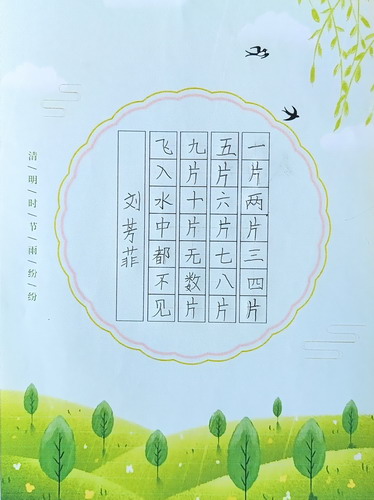 一片两片三四片
五片六片七八片
九片十片无数片
飞入水中都不见
刘芳菲
清/明/时/节/雨/纷/纷